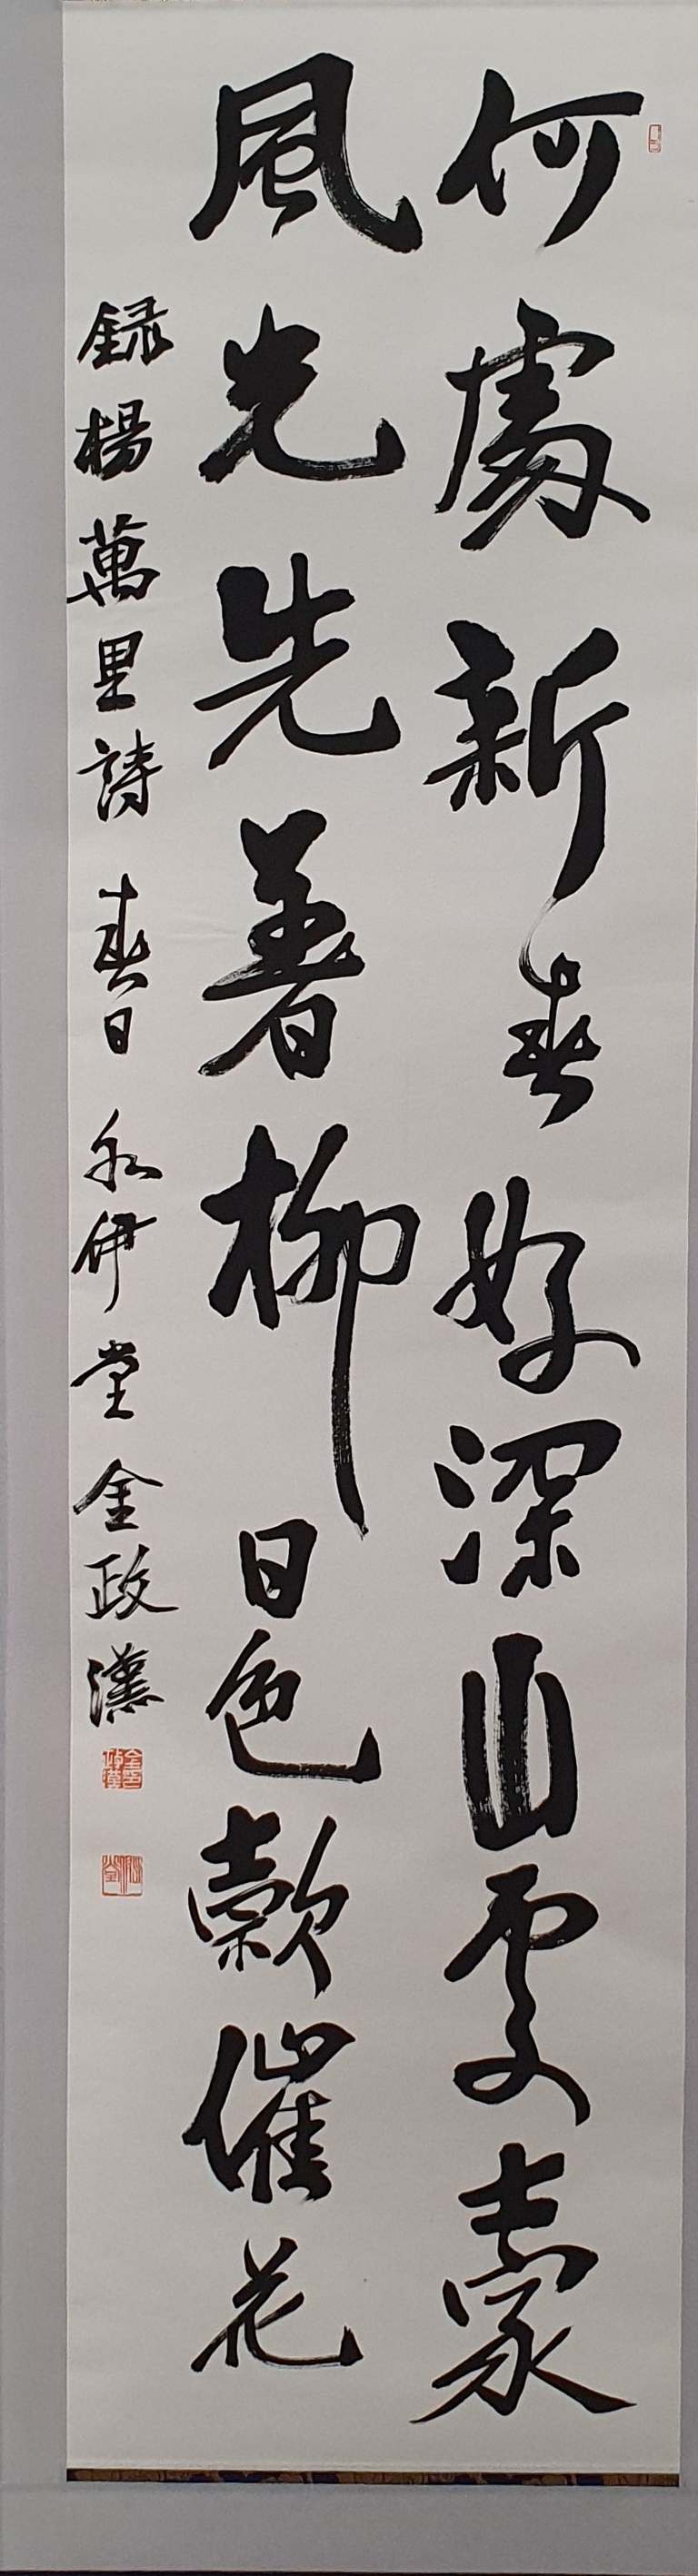 何處新春好深山處士家
風光先著柳日色款催花
録楊萬里詩 春日 伊堂 金政漢